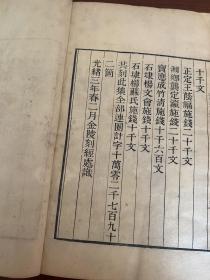 十千文
正定王蔭福施錢二十千文
湘鄉龔定瀛施錢二十千文
寶應成竹請施錢十千六百文
石埭楊文會施錢十千文
石埭楊蘇氏施錢十千文
共刻此集全部連圈計字十萬零二千七百九十
二箇
光緒三年春二月金陵刻經處識